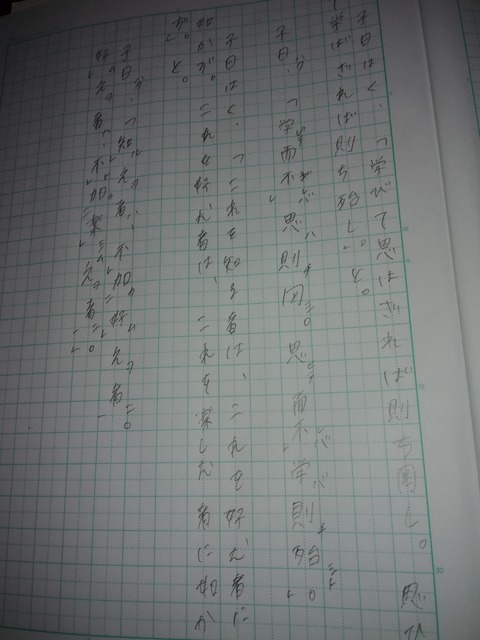 子曰はく、「学びて思はざれば則ち罔し。思ひ
学ばざれば則ち殆し。」と。
子曰、「学而不思則罔。思而不学則殆。」
子曰はく、「これを知る者は、これを好む者に
如かず。これを好む者は、これを楽しむ者に如か
ず。」と。
子曰、「知之者、不如好之者。
好之者、不如楽之者。」